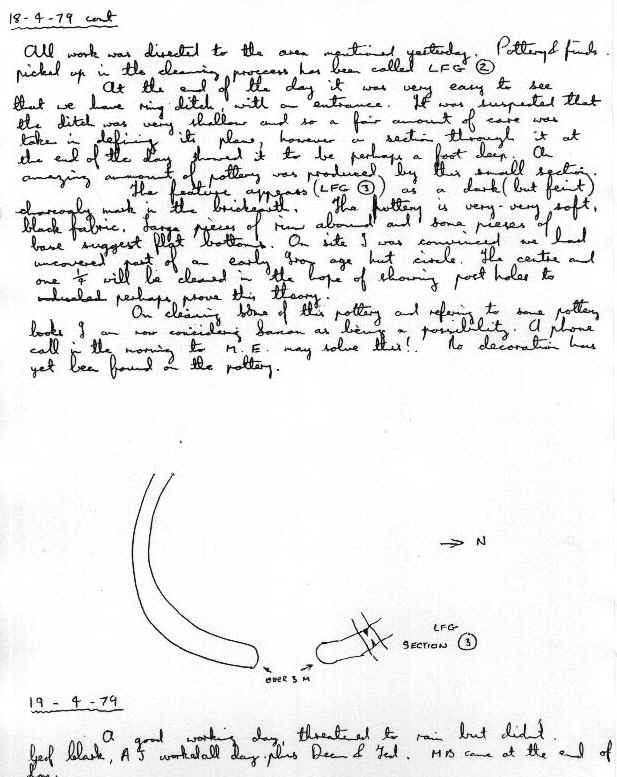 18-4-79 cont
All work was directed to the area mentioned yesterday. Pottery & finds
picked up in the cleaning proccess has been called LFG ②
At the end of the day it was very easy to see
that we have ring ditch, with an entrance. It was suspected that
the ditch was very shallow and so a fair amount of care was
take in defining its plan, however a section through it at
the end of the day showed it to be perhaps a foot deep. An
amazing ammount of pottery was produced by this small section.
The feature appears (LFG ③) as a dark (but feint)
charcoaly mark in the brickearth. The pottery is very-very soft,
black fabric. Large pieces of rim abound and some pieses of
base suggest flat bottoms. On site I was convinced we had
uncovered part of an early Iron age hut circle. The centre and
one ¼ will be cleaned in the hope of showing post holes to
perhaps prove this theory.
On cleaning some of this pottery and refering to some pottery
books I am now considering Saxon as being a possibility. A phone
call in the morning to M. E. may solve this!. No decoration has
yet been found on the pottery.
→ N
LFG
SECTION ③
OVER 3 M
19 - 4 - 79
A good working day, threatened to rain but didn't.
Geof Clark, A J worked all day plus Dean & Ted. MB came at the end of